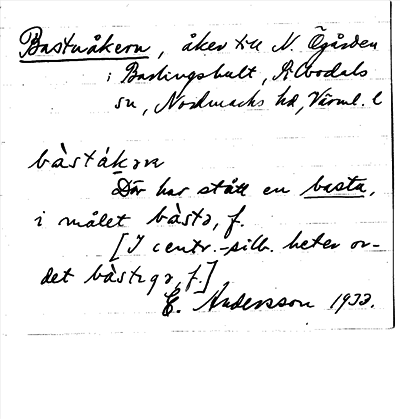 Bastnåkern, åker till N. Ögården
i Barlingshult, Silbodals
sn, Nordmarks hd, Värml. l
bàståkɘrn
Där har stått en basta,
i målet bàstɘ, f.
[I centr.-silb. heter or-
det bàstɘgɘ, f.]
E. Andersson 1932.